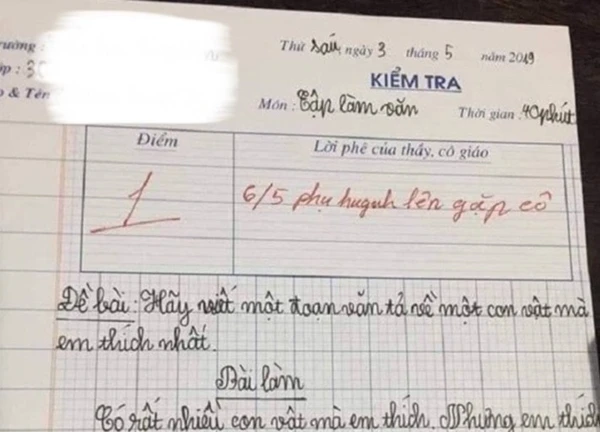 Thứ sáu, ngày 3 tháng 5 năm 2019
KIỂM TRA
Môn: Tập làm văn Thời gian: 40 phút
Điểm
Lời phê của thầy, cô giáo
1
6/5 phụ huynh lên gặp cô
Đề bài: Hãy viết một đoạn văn tả về một con vật mà
em thích nhất.
Bài làm
Có rất nhiều con vật mà em thích. Nhưng em thích